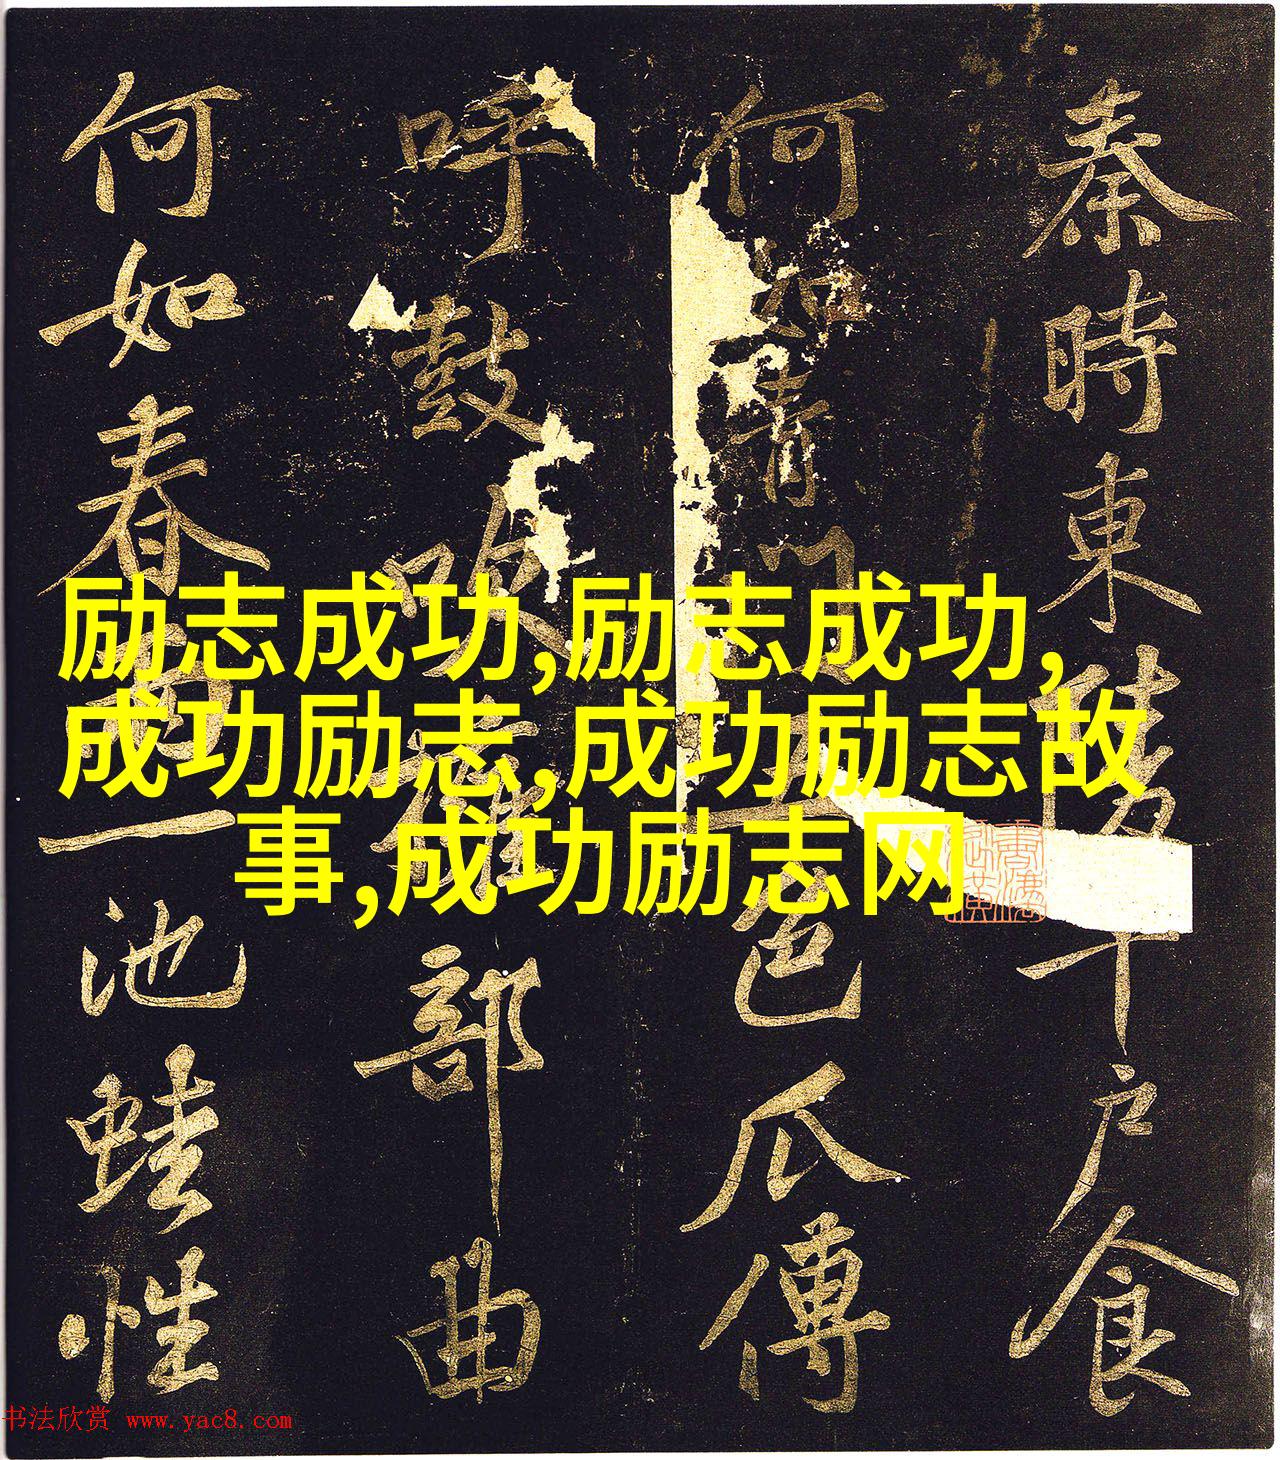 秦時東陵千戶食
何如青門五色瓜傳
呼鼓吹羅部曲
何如春雨一池蛙性
励志成功,励志成功,
成功励志,成功励志故
事,成功励志网
书法欣赏 www.yac8.com